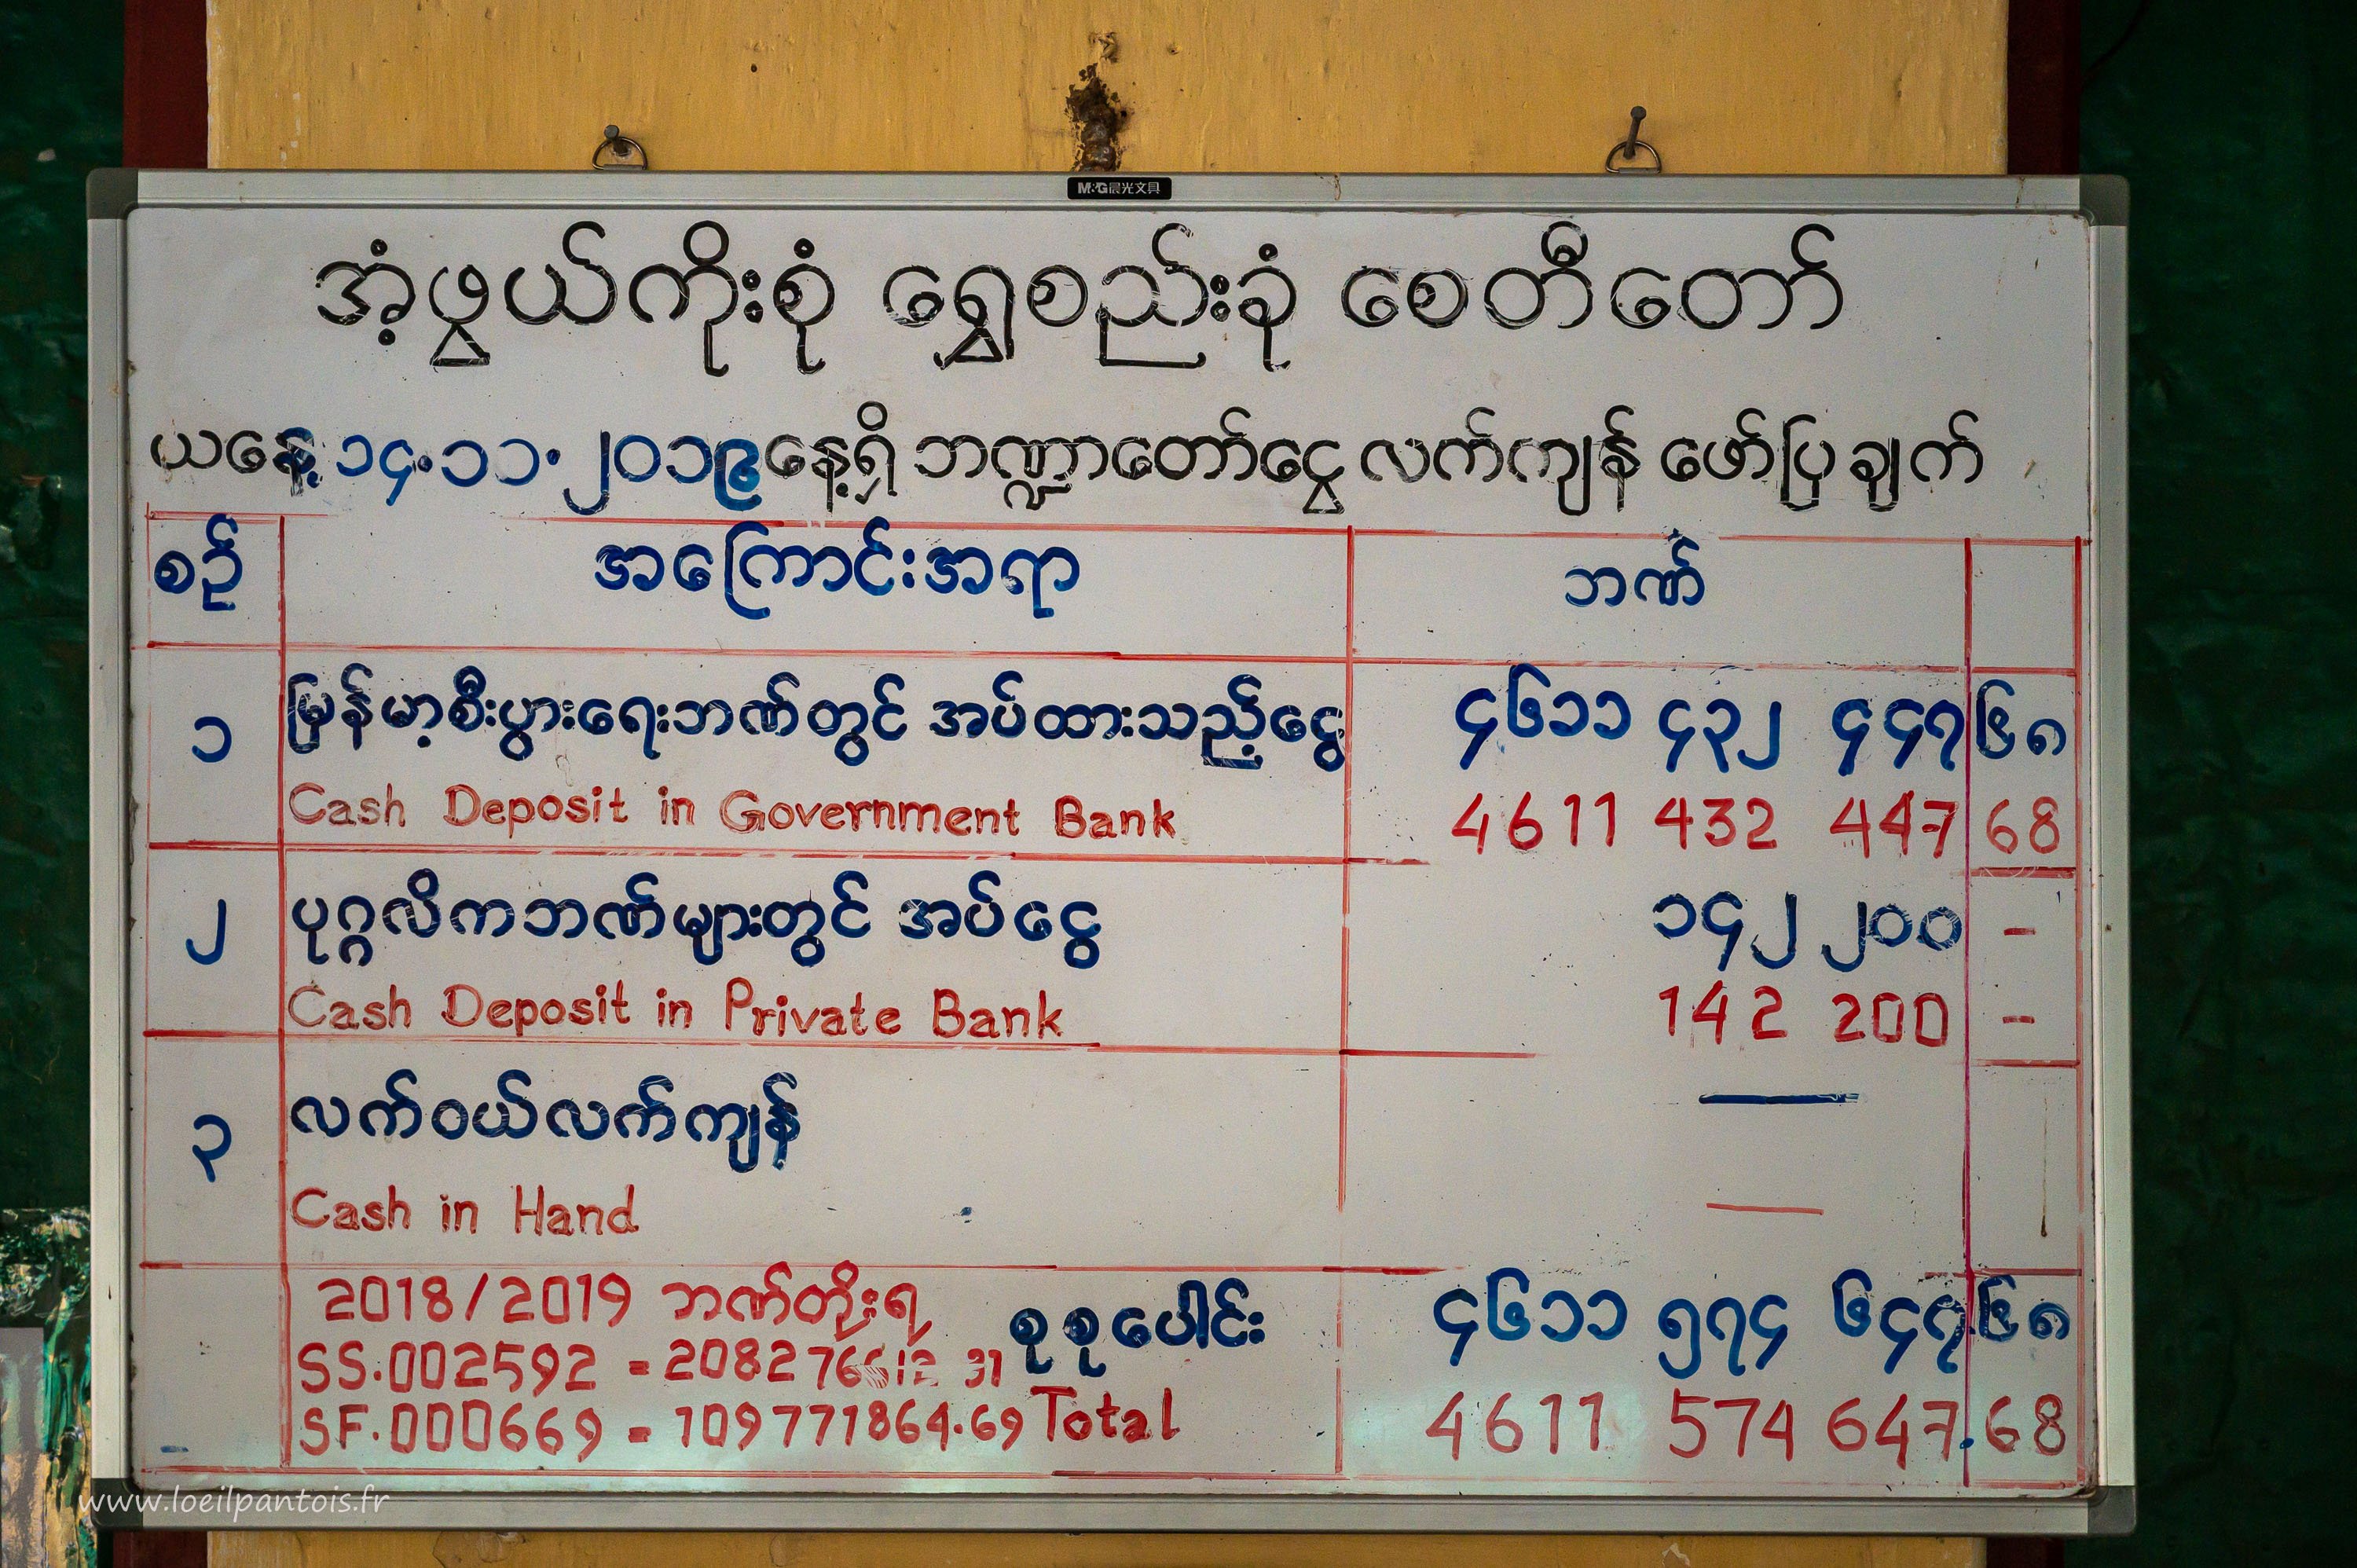 M&G晨光文具
အံ့ဖွယ်ကိုးစုံ ရွှေစည်းခုံ စေတီတော်
ယနေ့ ၁၄.၁၁.၂၀၁၉နေ့ရှိ ဘဏ္ဍာတော်ငွေ လက်ကျန် ဖော်ပြချက်
စဉ် အကြောင်းအရာ ဘဏ်
၁ မြန်မာ့စီးပွားရေးဘဏ်တွင် အပ်ထားသည့်ငွေ ၄၆၁၁ ၄၃၂ ၄၄၇ ၆၈
Cash Deposit in Government Bank 4611 432 447 68
၂ ပုဂ္ဂလိကဘဏ်များတွင် အပ်ငွေ ၁၄၂ ၂၀၀ -
Cash Deposit in Private Bank 142 200 -
၃ လက်ဝယ်လက်ကျန် —
Cash in Hand —
2018/2019 ဘဏ်တိုးရ စုစုပေါင်း ၄၆၁၁ ၅၇၄ ၆၄၇ ၆၈
SS.002592 = 31
SF.000669 = 109771864.69 Total 4611 574 647.68
www.loeilpantois.fr